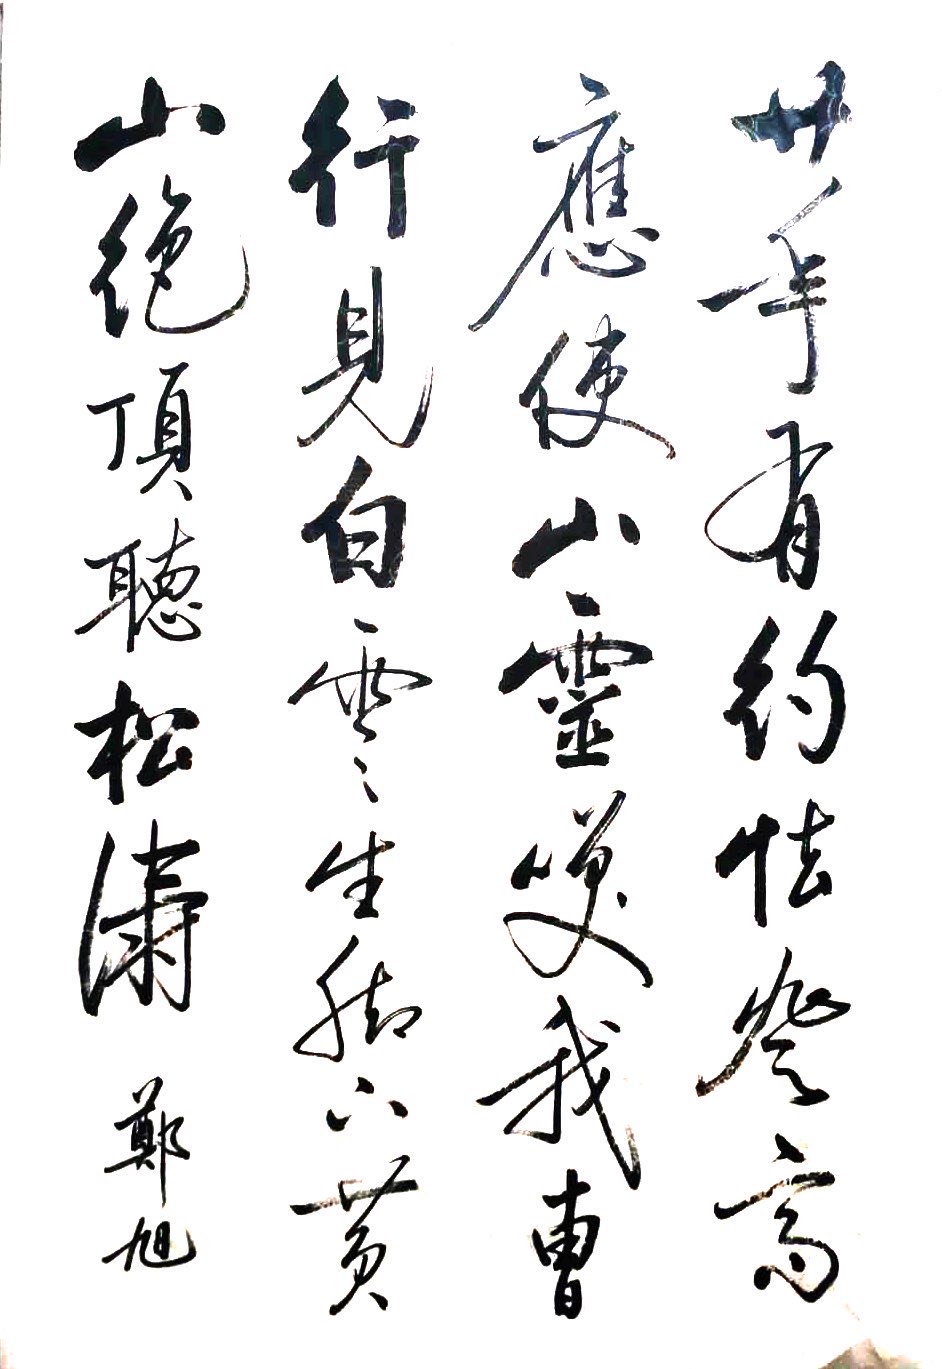 廿年有約怯登高
應使山靈咲我曹
行見白雲生脚下黄
山絶頂聽松濤
鄭旭